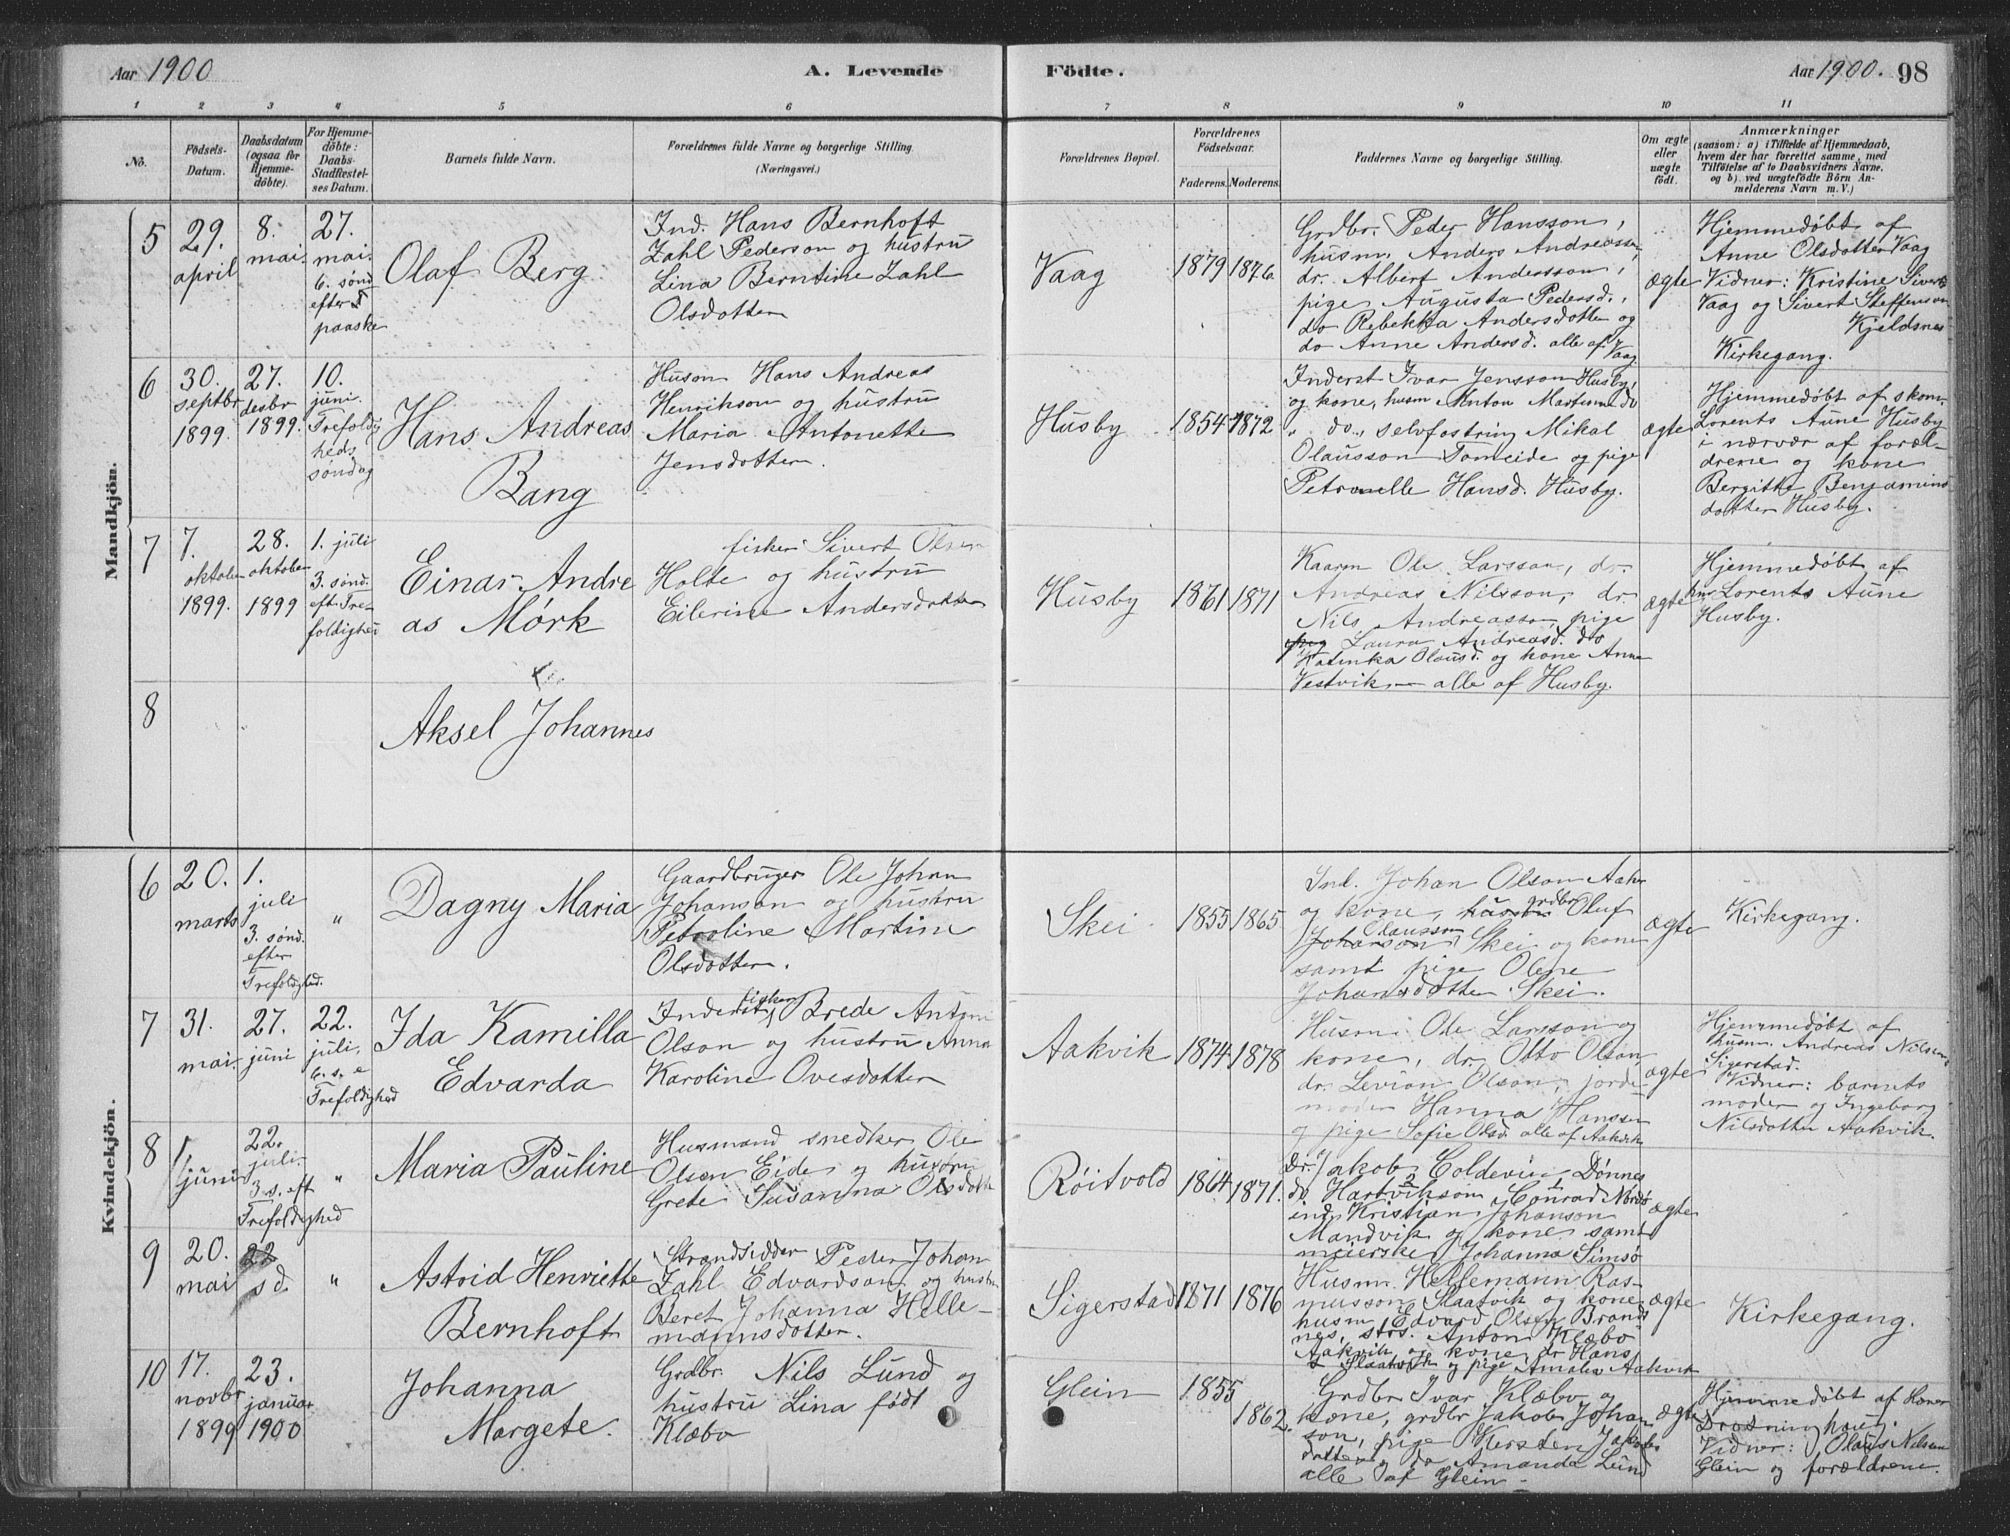 Aar 1900
A. Levende
Födte.
Aar 1900. 98
1 2 3 4 5 6 7 8 9 10 11
No.
Födsels-
Datum.
Daabsdatum
(ogsaa for
Hjemme-
döbte).
For Hjemme-
döbte:
Daabs-
Stadfæstel-
ses Datum.
Barnets fulde Navn.
Forældrenes fulde Navne og borgerlige Stilling
(Næringsvei.)
Forældrenes Bopæl.
Forældrenes
Födselsaar.
Faderens. Moderens.
Faddernes Navne og borgerlige Stilling.
Om ægte
eller
uægte
födt.
Anmærkninger
(saasom: a) i Tilfælde af Hjemmedaab,
hvem der har forrettet samme, med
Tilföielse af to Daabsvidners Navne,
og b) ved uægtefödte Börn An-
melderens Navn m.V.)
Mandkjön.
5
29.
april
8.
mai.
27.
mai.
6. sønd
efter
paaske
Olaf Berg
Ind. Hans Bernhoft
Zahl Pederson og hustru
Lina Berntine Zahl
Olsdotter
Vaag
1879 1876
Grdbr. Peder Hansson,
husm. Anders Andreassen,
dr. Albert Andersson,
pige Augusta Pedersd.,
do Rebekka Andersdotter og
do Anne Andersd. alle af Vaag
ægte
Hjemmedøbt af
Anne Olsdotter Vaag
Vidner: Kristine Siverts
Vaag og Sivert Steffenson
Kjeldsnes
Kirkegang.
6
30.
septbr
1899.
27.
desbr
1899.
10.
juni
Trefoldig
heds
søndag
Hans Andreas
Bang
Husm Hans Andreas
Henrikson og hustru
Maria Antonette
Jensdotter.
Husby
1854 1872
Inderst Ivar Jensson Husby,
og kone, husm Anton Martinus do
" do., selvfostring Mikal
Olausson Tomeide og pige
Petronelle Hansd. Husby.
ægte
Hjemmedøbt af skom.
Lorents Aune Husby
i nærvær af foræl-
drene og kone
Bergitte Benjamins
dotter Husby.
7
7.
oktober
1899.
28.
oktober
1899
1. juli
3. sønd.
eft. Tre-
foldighed
Einar Andre
as Mørk
fisker Sivert Olsen
Holte og hustru
Eilerine Andersdotter
Husby
1861 1871
Kaarm Ole Larsson, dr.
Andreas Nilsson, dr.
Nils Andreasson, pige
pig Laura Andreasd. do
Katinka Olausd. og kone Anna
Vestvik — alle af Husby.
ægte
Hjemmedøbt af
Lorents Aune
Husby.
8
Aksel Johannes
Kvindekjön.
6
20.
marts
1.
juli
3. sønd.
efter
Trefoldighed.
"
Dagny Maria
Gaardbruger Ole Johan
Johanson og hustru
Petroline Martine
Olsdotter.
Skei
1855 1865
Ind. Johan Olson Aaker
og kone, husm grdbr Oluf
Johanson Olausson Skei og kone
samt pige Olene
Johansdotter Skei.
ægte
Kirkegang.
7
31.
mai.
27.
juni
22.
juli.
6. s. e
Trefoldighed
Ida Kamilla
Edvarda
Inderst, fisker Brede Antoni
Olson og hustru Anna
Karoline Ovesdotter
Aakvik
1874 1878
Husm Ole Larsson og
kone, dr. Otto Olson
dr. Levion Olson, jorde
moder Hanna Hanssen
og pige Sofie Olsd. alle af Aakvik
ægte
Hjemmedøbt af
husm. Andreas Nilsson
Sigerstad.
Vidner: barnets
moder og Ingeborg
Nilsdotter Aakvik.
8
1.
juni
22.
juli.
3. s. eft
Trefoldighed
"
Maria Pauline
Husmand snedker Ole
Olsen Eide og hustru
Grete Susanna Olsdotter
Røitvold
1864 1871.
Dr. Jakob Coldevin Dønnes
do Hartvikson Conrad Nordø
ind. Kristian Johanson
Mandvik og kone samt
meierske Johanna Simsø
ægte
9
20.
mai
22
sd.
"
Astrid Henriette
Bernhoft
Strandsidder Peder Johan
Zahl Edvardson og hustru
Beret Johanna Helle-
mannsdotter.
Sigerstad
1871 1876
Husm. Hellemann Ras-
musson Slaatvik og kone
husm Edvard Olsen Brands
nes, strs. Anton Klæbo
Aakvik og kone, dr Hans
Slaatvik og pige Amalia Aakvik
ægte
Kirkegang.
10
17.
novbr
1899
23.
januar
1900
Johanna
Margete.
Grdbr. Nils Lund og
hustru Lina født
Klæbo
Glein
1855
1862.
Grdbr Ivar Klæbo og
kone, grdbr Jakob Johan
son, pige Kersten Jakobs
dotter og do Amanda Lund
alle af Glein
ægte
Hjemmedøbt af
Vidner: Olaus Nilsen
Glein og forældrene.